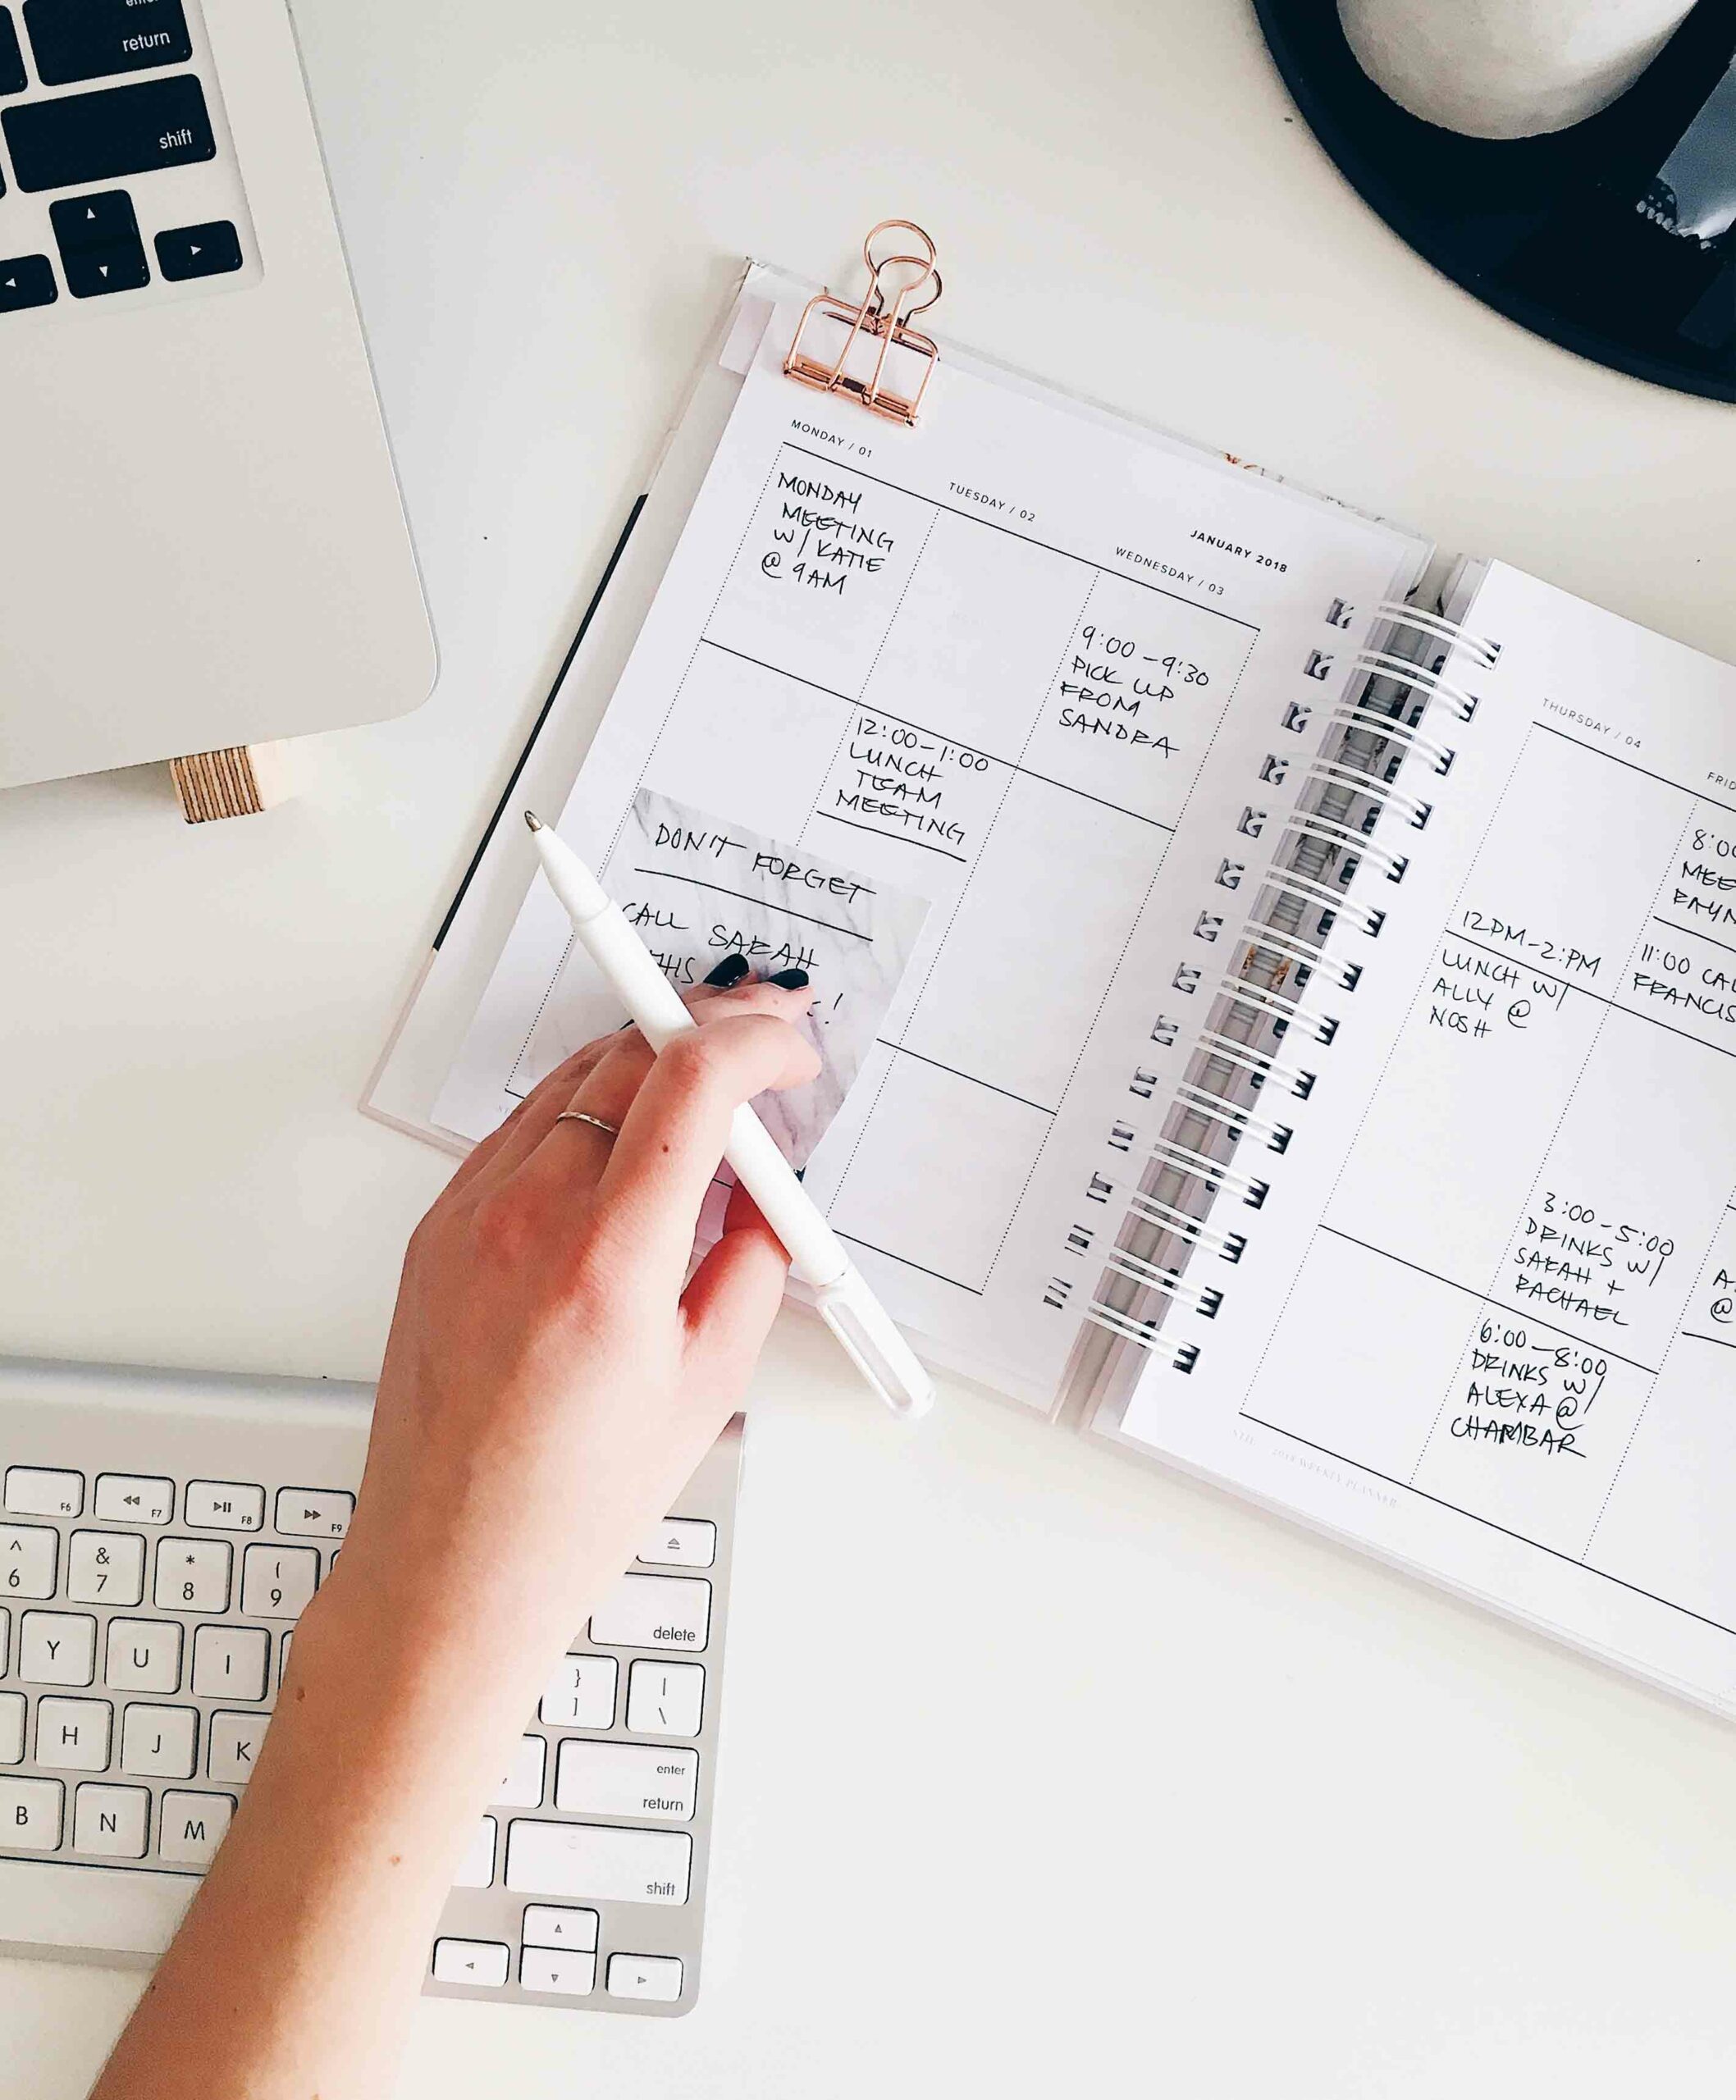 return
shift
MONDAY / 01
TUESDAY / 02
JANUARY 2018
WEDNESDAY / 03
MONDAY
MEETING
W/ KATIE
@ 9AM
12:00-1:00
LUNCH
TEAM
MEETING
9:00-9:30
PICK UP
FROM
SANDRA
DON'T FORGET
CALL SARAH
THIS
!
THURSDAY / 04
12PM-2:PM
LUNCH W/
ALLY @
NOSH
8:0
MEE
11:00 CAL
FRANCIS
3:00-5:00
DRINKS W/
SARAH +
RACHAEL
6:00-8:00
DRINKS W/
ALEXA @
CHAMBAR
A
@
2018 WEEKLY PLANNER
F6
F7
F8
F9
^ & * (
6 7 8 9
delete
Y U I
} |
] \
H J K
enter
return
B N M
shift